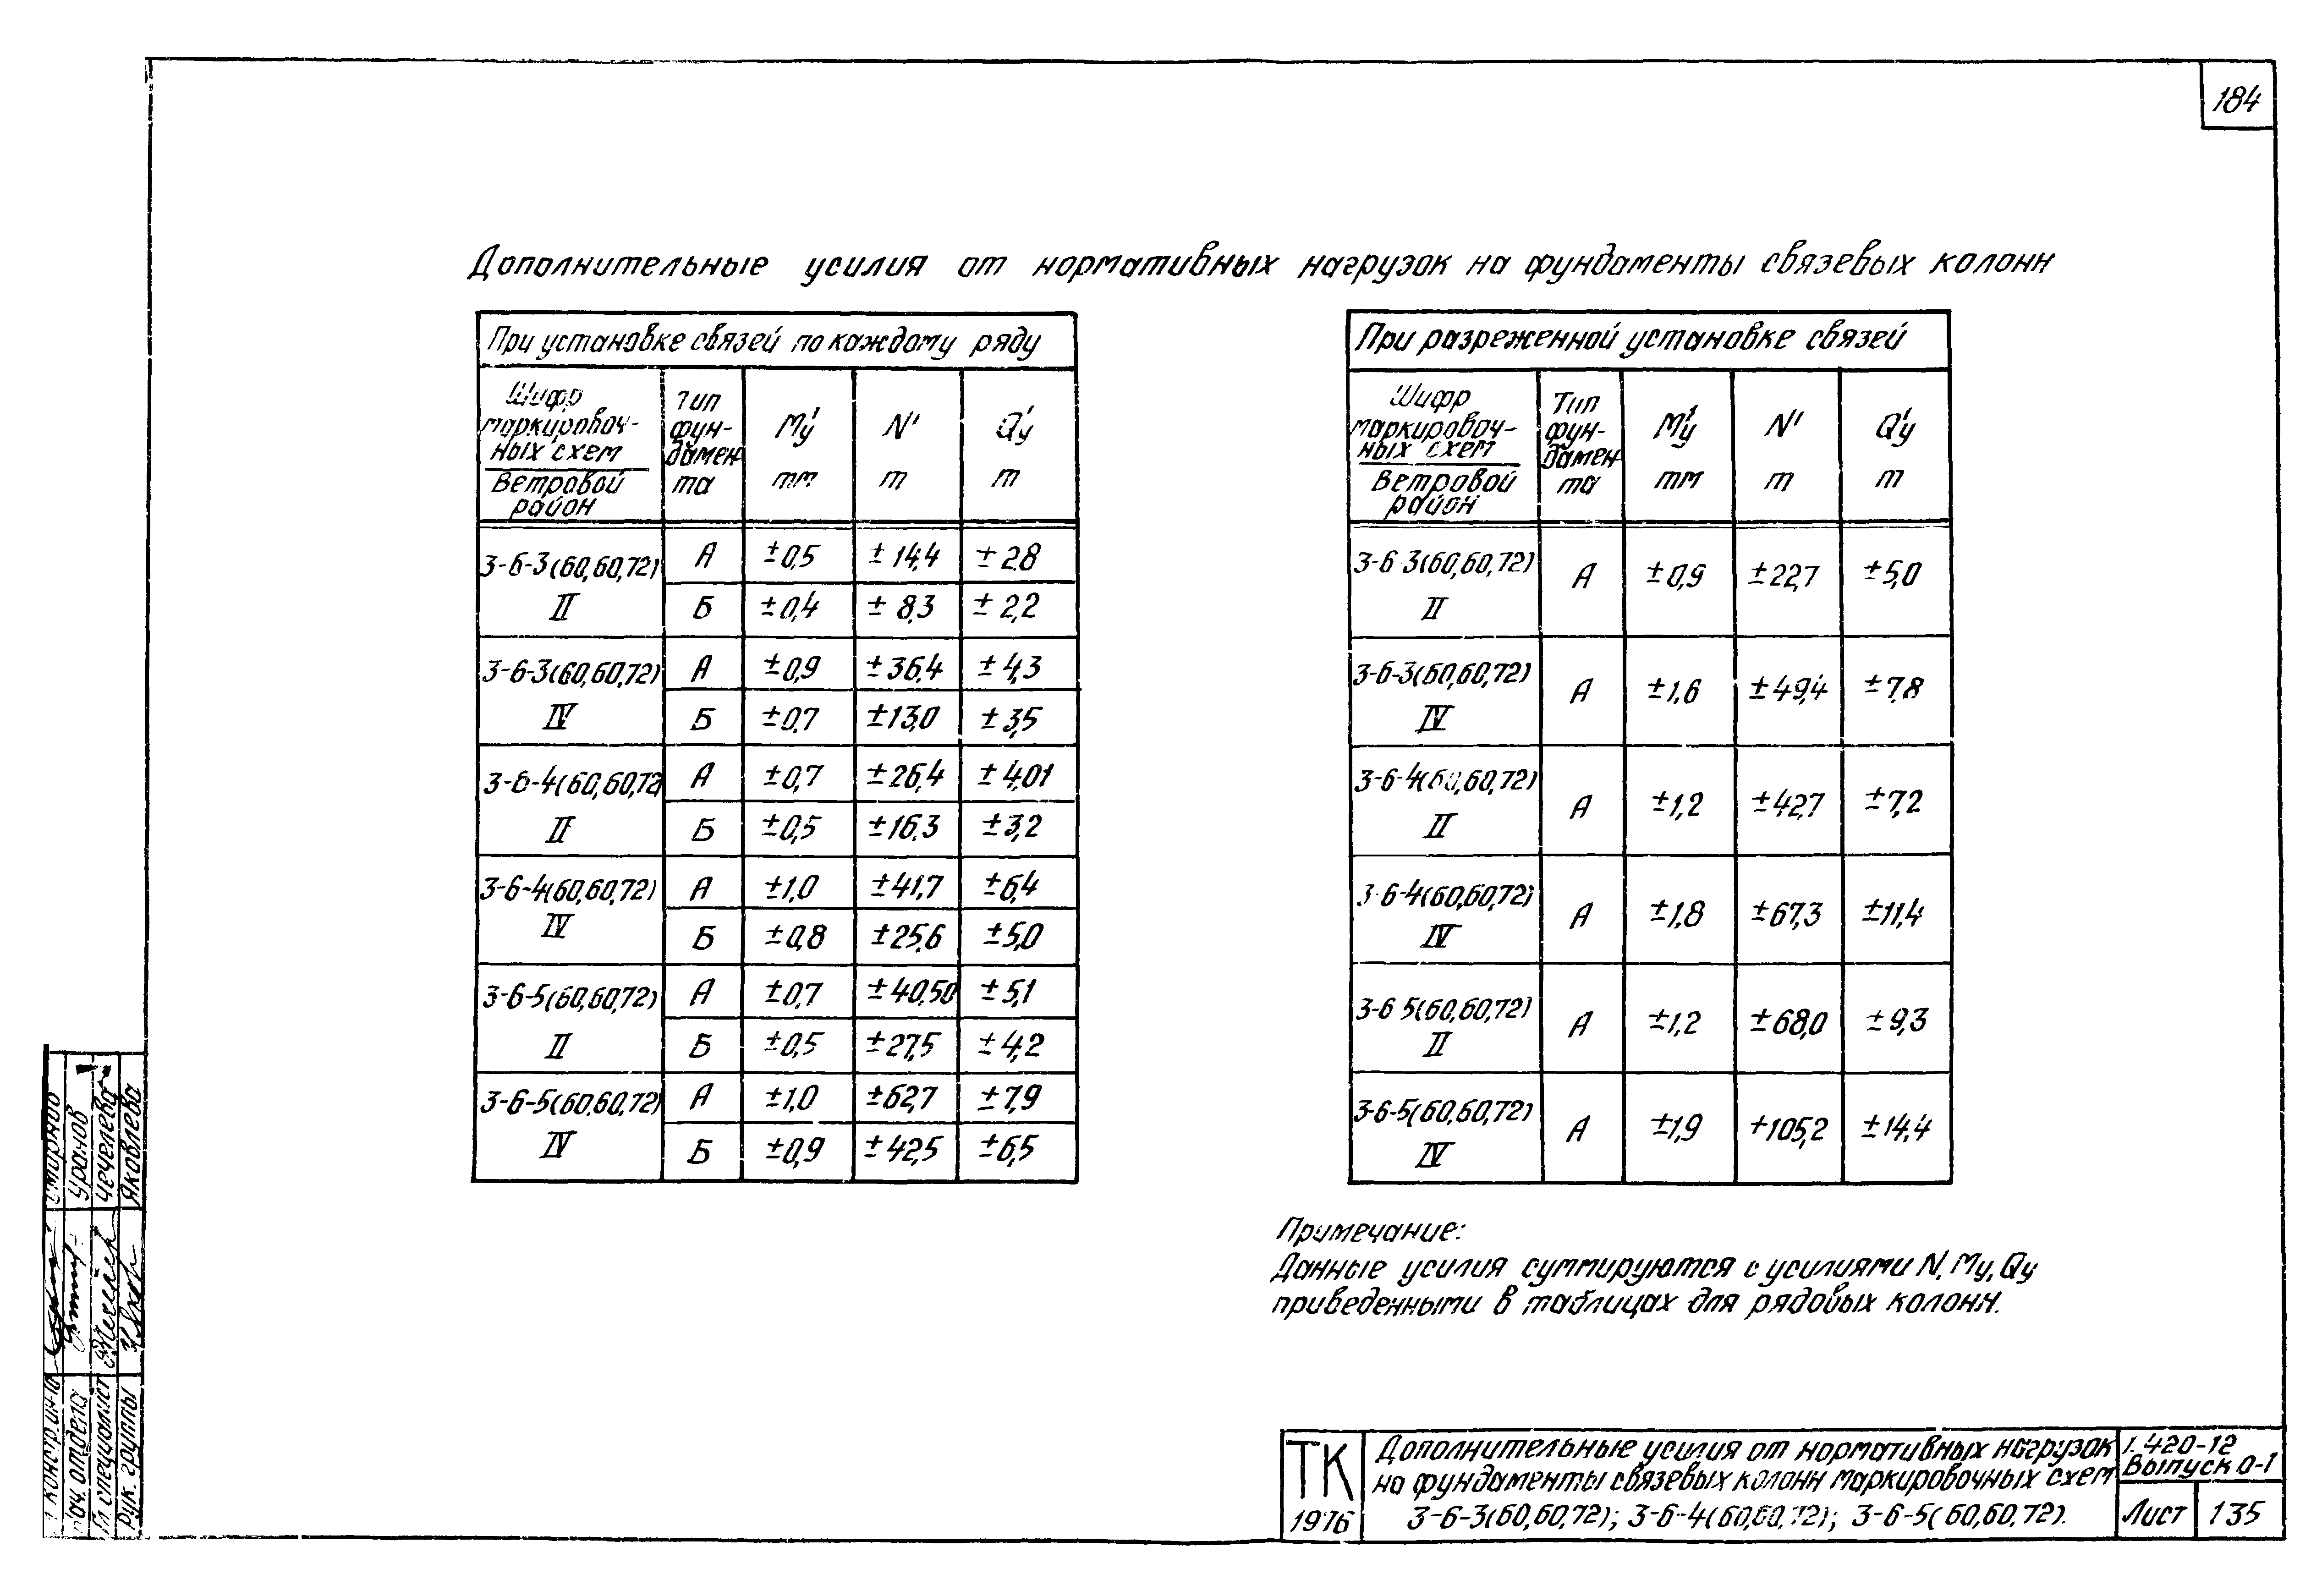 184
Дополнительные усилия от нормативных нагрузок на фундаменты связевых колонн
При установке связей по каждому ряду
Шифр маркировоч-ных схем / Ветровой район | Тип фун-дамен-та | M'y тм | N' т | Q'y т
3-6-3(60,60,72) II | А | ±0,5 | ±14,4 | ±2,8
Б | ±0,4 | ±8,3 | ±2,2
3-6-3(60,60,72) IV | А | ±0,9 | ±36,4 | ±4,3
Б | ±0,7 | ±13,0 | ±3,5
3-6-4(60,60,72 II | А | ±0,7 | ±26,4 | ±4,01
Б | ±0,5 | ±16,3 | ±3,2
3-6-4(60,60,72) IV | А | ±1,0 | ±41,7 | ±6,4
Б | ±0,8 | ±25,6 | ±5,0
3-6-5(60,60,72) II | А | ±0,7 | ±40,50 | ±5,1
Б | ±0,5 | ±27,5 | ±4,2
3-6-5(60,60,72) IV | А | ±1,0 | ±62,7 | ±7,9
Б | ±0,9 | ±42,5 | ±6,5
При разреженной установке связей
Шифр маркировоч-ных схем / Ветровой район | Тип фун-дамен-та | M'y тм | N' т | Q'y т
3-6-3(60,60,72) II | А | ±0,9 | ±22,7 | ±5,0
3-6-3(60,60,72) IV | А | ±1,6 | ±49,4 | ±7,8
3-6-4(60,60,72) II | А | ±1,2 | ±42,7 | ±7,2
3-6-4(60,60,72) IV | А | ±1,8 | ±67,3 | ±11,4
3-6 5(60,60,72) II | А | ±1,2 | ±68,0 | ±9,3
3-6-5(60,60,72) IV | А | ±1,9 | +105,2 | ±14,4
Примечание:
Данные усилия суммируются с усилиями N, My, Qy
приведенными в таблицах для рядовых колонн.
ТК
1976
Дополнительные усилия от нормативных нагрузок
на фундаменты связевых колонн маркировочных схем
3-6-3(60,60,72); 3-6-4(60,60,72); 3-6-5(60,60,72).
1.420-12
Выпуск 0-1
Лист 135
констр.
Уранов
отдела
Чечелева
Гл специалист
Яковлева
Рук. группы